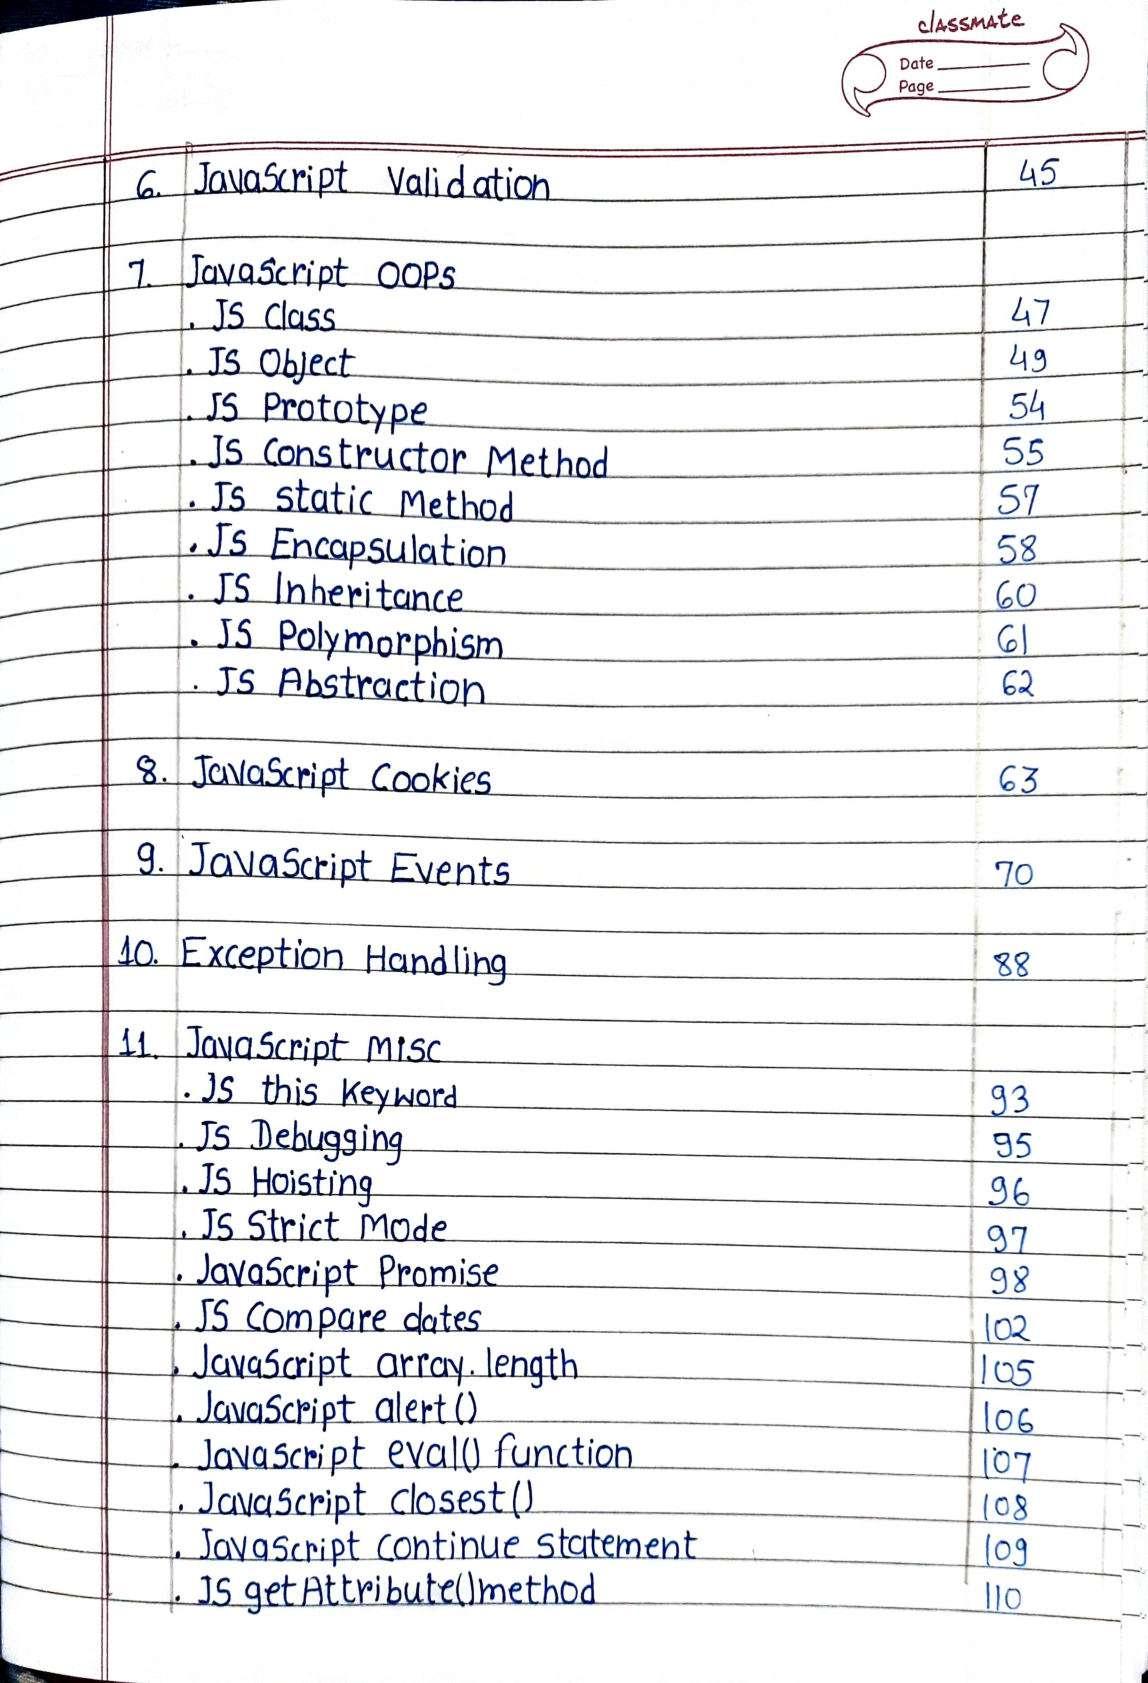 classmate
Date
Page
6. JavaScript Validation 45
7. JavaScript OOPs
. JS Class 47
. JS Object 49
. JS Prototype 54
. JS Constructor Method 55
. JS static Method 57
. JS Encapsulation 58
. JS Inheritance 60
. JS Polymorphism 61
. JS Abstraction 62
8. JavaScript Cookies 63
9. JavaScript Events 70
10. Exception Handling 88
11. JavaScript Misc
. JS this Keyword 93
. JS Debugging 95
. JS Hoisting 96
. JS Strict Mode 97
. JavaScript Promise 98
. JS Compare dates 102
. JavaScript array.length 105
. JavaScript alert() 106
. JavaScript eval() function 107
. JavaScript closest() 108
. JavaScript continue statement 109
. JS getAttribute() method 110